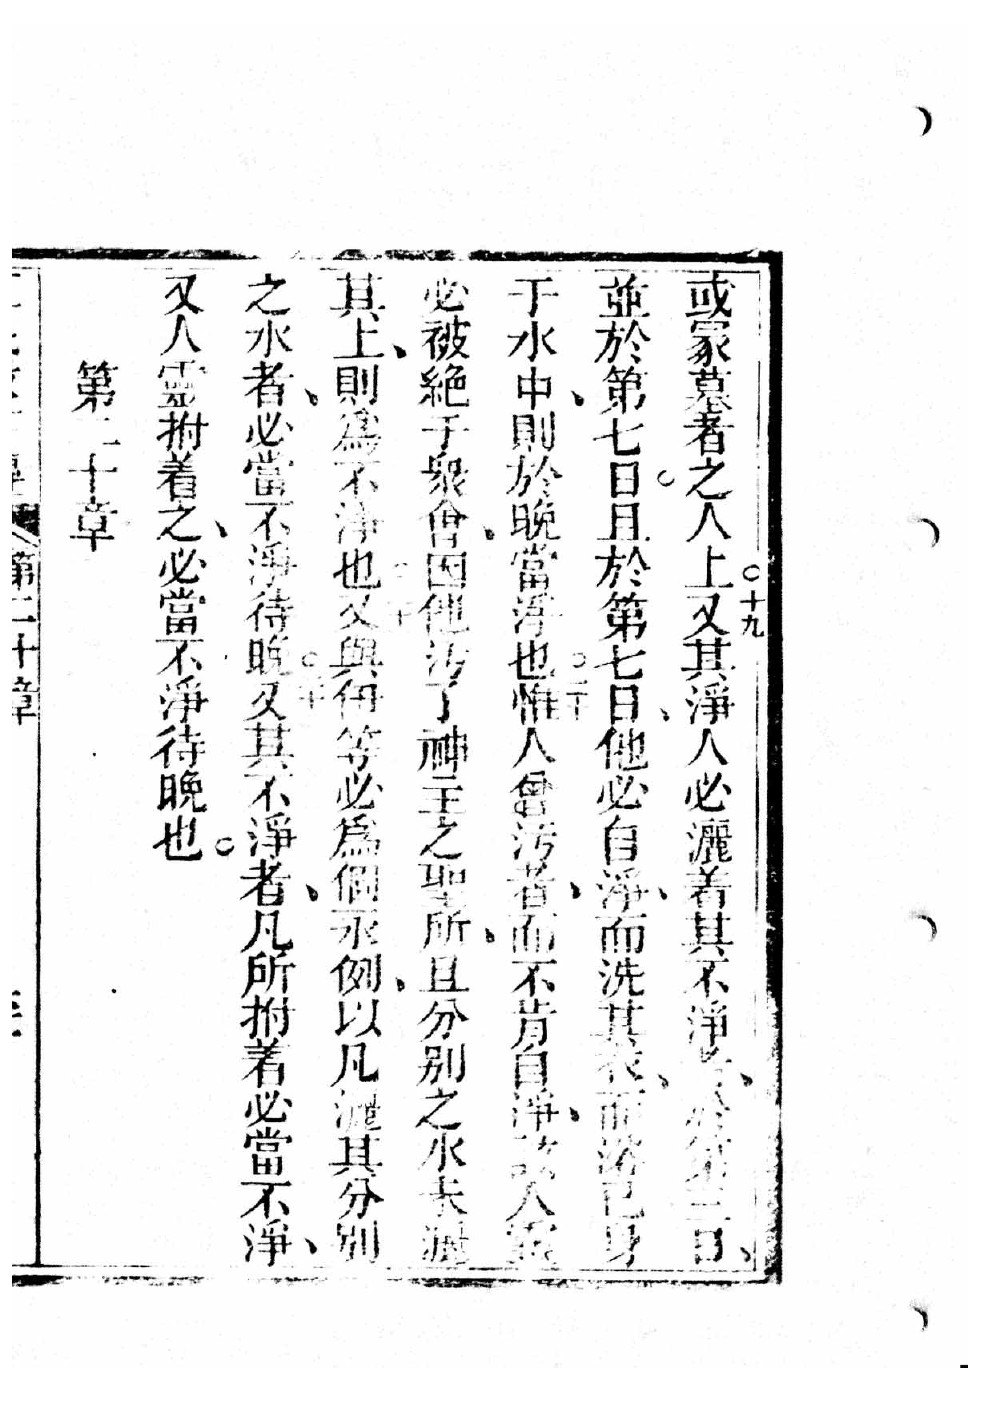 或冢墓者之人上又其淨人必灑着其不淨者、於第三日、
十九
並於第七日。且於第七日、他必自淨、而洗其衣、而浴己身
于水中、則於晚當淨也惟人曾污者、而不肯自淨、該人靈
二十
必被絕于衆會、因他污了神王之聖所、且分別之水未灑
其上、則爲不淨也又與伊等必爲個永例、以凡灑其分別
之水者、必當不淨待晚又其不淨者、凡所拊着必當不淨、
又人靈拊着之、必當不淨待晚也。
第二十章
第二十章